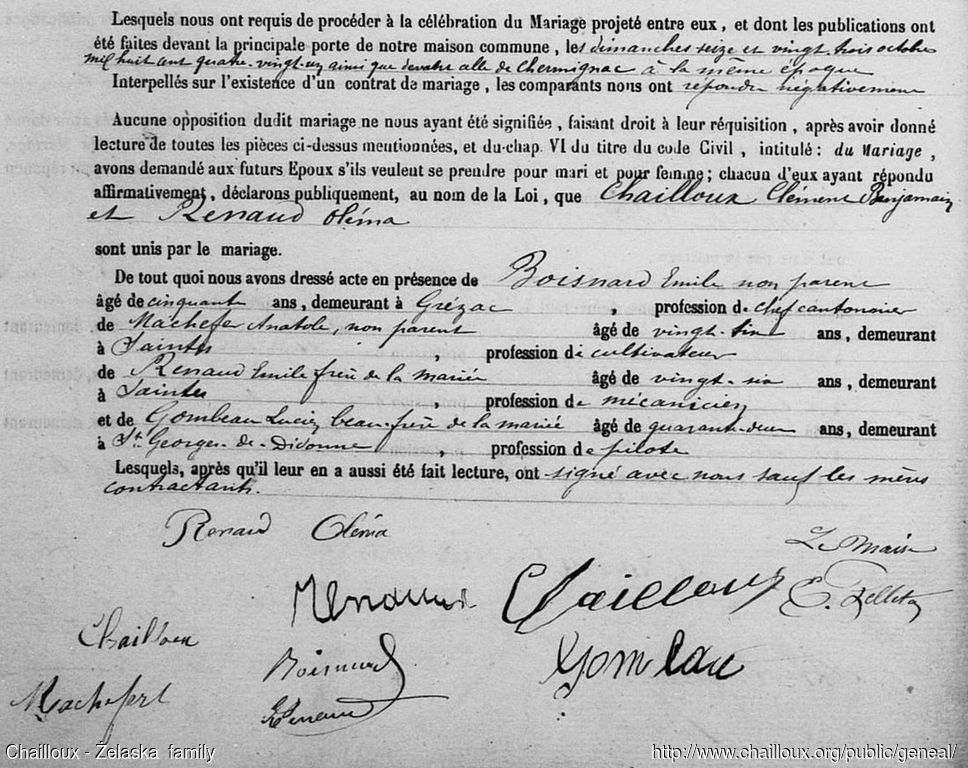 Lesquels nous ont requis de procéder à la célébration du Mariage projeté entre eux, et dont les publications ont
été faites devant la principale porte de notre maison commune, les dimanches seize et vingt-trois octobre
mil huit cent quatre-vingt-un ainsi que devant celle de Chermignac à la même époque
Interpellés sur l'existence d'un contrat de mariage, les comparants nous ont répondu négativement
Aucune opposition dudit mariage ne nous ayant été signifiée, faisant droit à leur réquisition, après avoir donné
lecture de toutes les pièces ci-dessus mentionnées, et du chap. VI du titre du code Civil, intitulé : du Mariage,
avons demandé aux futurs Epoux s'ils veulent se prendre pour mari et pour femme; chacun d'eux ayant répondu
affirmativement, déclarons publiquement, au nom de la Loi, que Chailloux Clément Benjamain
et Renaud Oléma
sont unis par le mariage.
De tout quoi nous avons dressé acte en présence de Boisnard Emile non parent
âgé de cinquante ans, demeurant à Grézac, profession de chef cantonnier
de Machefer Anatole, non parent âgé de vingt-cinq ans, demeurant
à Saintes, profession de cultivateur
de Renaud Emile frère de la mariée âgé de vingt-six ans, demeurant
à Saintes, profession de mécanicien
et de Gombeau Lucien beau-frère de la mariée âgé de quarante-deux ans, demeurant
à St Georges-de-Didonne, profession de pilote
Lesquels, après qu'il leur en a aussi été fait lecture, ont signé avec nous sauf les mères
contractants.
Renaud Oléma
Le Maire
Renaud Chailloux E. Pelleton
Chailloux Boisnard Gombeau
Machefert Renaud
Chailloux - Želaska family http://www.chailloux.org/public/geneal/